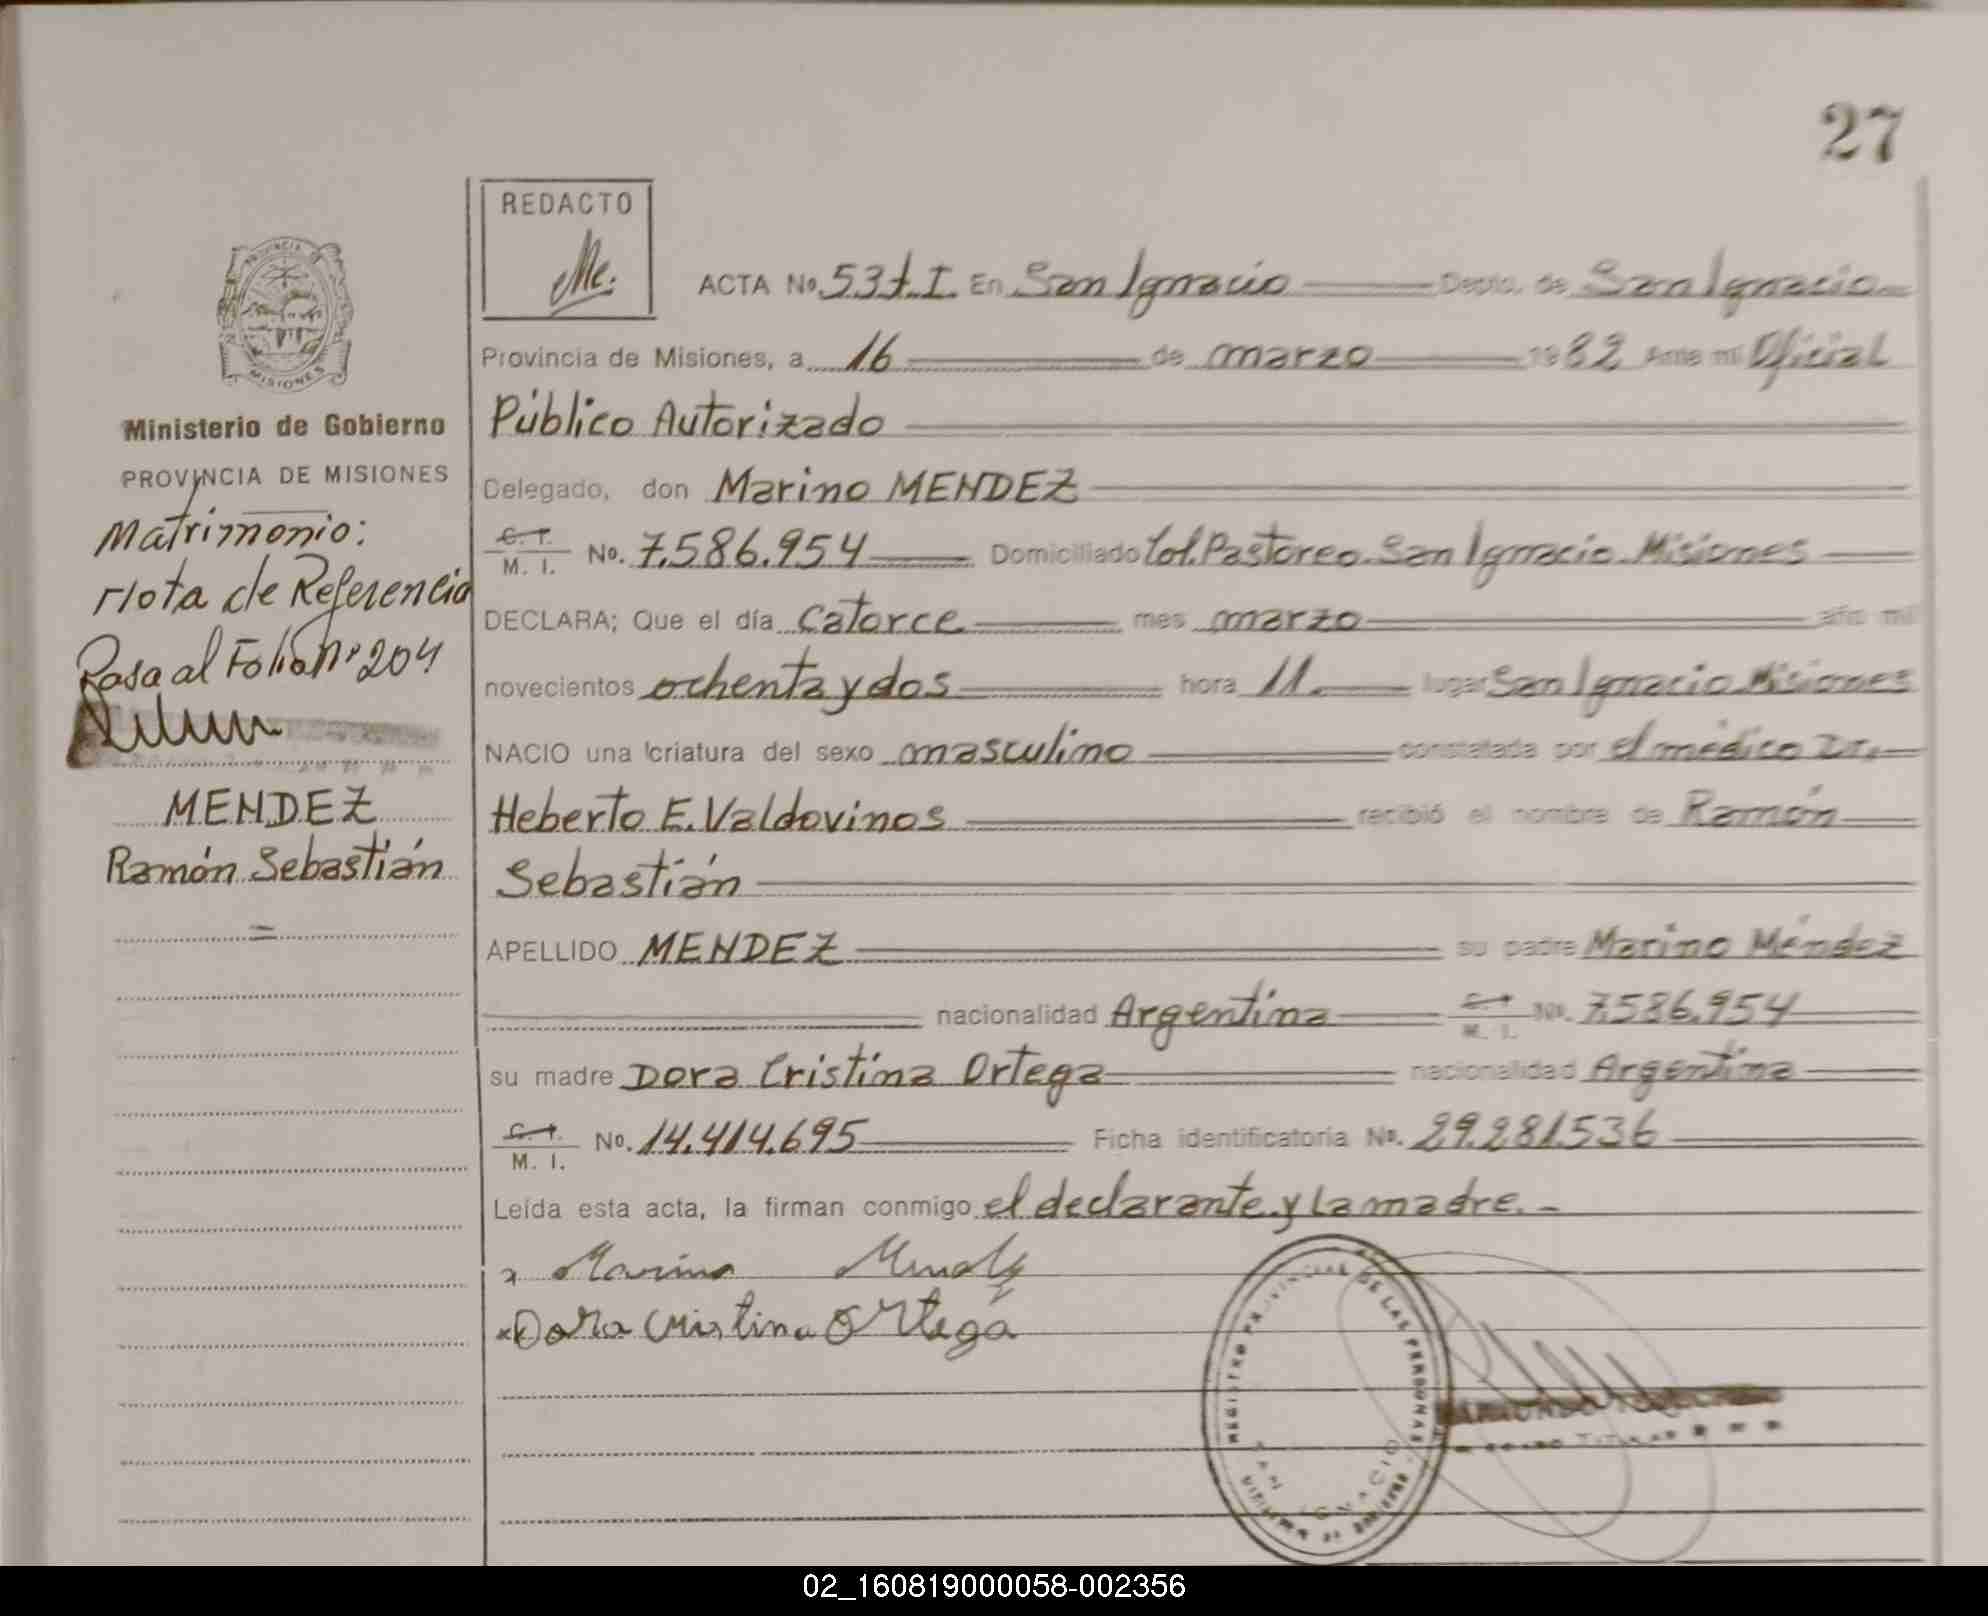 27
REDACTO
Me.
ACTA No. 53 t. I. En San Ignacio Depto. de San Ignacio
Provincia de Misiones, a 16 de marzo 1982 Ante mí Oficial
Público Autorizado
Delegado, don Marino MENDEZ
C. I. M. I. No. 7.586.954 Domiciliado Col. Pastoreo. San Ignacio. Misiones
DECLARA; Que el día catorce mes marzo año mil
novecientos ochenta y dos hora 11. lugar San Ignacio Misiones
NACIO una criatura del sexo masculino constatada por el médico Dr.
Heberto E. Valdovinos recibió el nombre de Ramón
Sebastián
APELLIDO MENDEZ su padre Marino Méndez
nacionalidad Argentina C. I. M. I. No. 7.586.954
su madre Dora Cristina Ortega nacionalidad Argentina
C. I. M. I. No. 14.414.695 Ficha identificatoria No. 29.281.536
Leída esta acta, la firman conmigo el declarante y la madre. -
Marino Mendez
x Dora Cristina Ortega
REGISTRO PROVINCIAL DE LAS PERSONAS
SAN IGNACIO
TITULAR
PROVINCIA DE MISIONES
Ministerio de Gobierno
PROVINCIA DE MISIONES
Matrimonio:
Nota de Referencia
Pasa al Folio Nº 204
MENDEZ
Ramón Sebastián
=
02_160819000058-002356